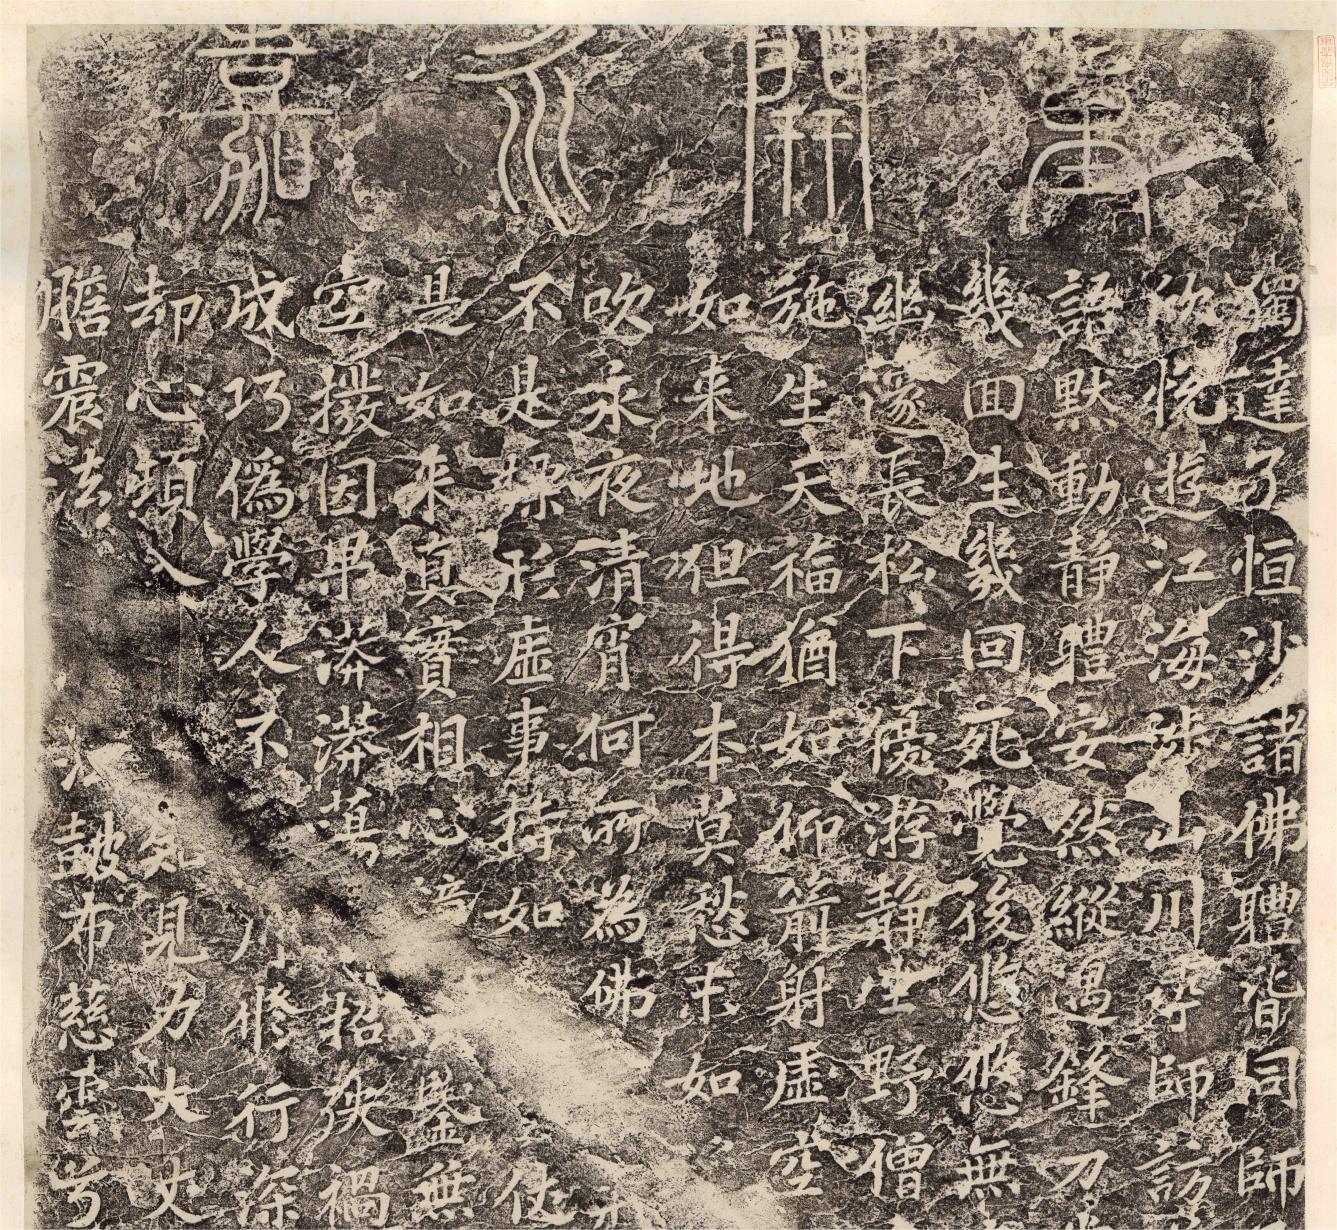 開永嘉
獨達了恒沙諸佛體皆同師
欣悅遊江海涉山川尋師訪
語默動靜體安然縱遇鋒刀
幾囬生幾回死覺後悠悠無
幽邃長松下優游靜坐野僧
施生天福猶如仰箭射虛空
如来地但得本莫愁末如
吹永夜清宵何所為佛
不是摽形虛事持如
是如来真實相心鑒無
空撥因果漭漭蕩招殃禍
成巧偽學人不用修行深
却心頓入知見力大丈
膽震法法皷布慈雲兮